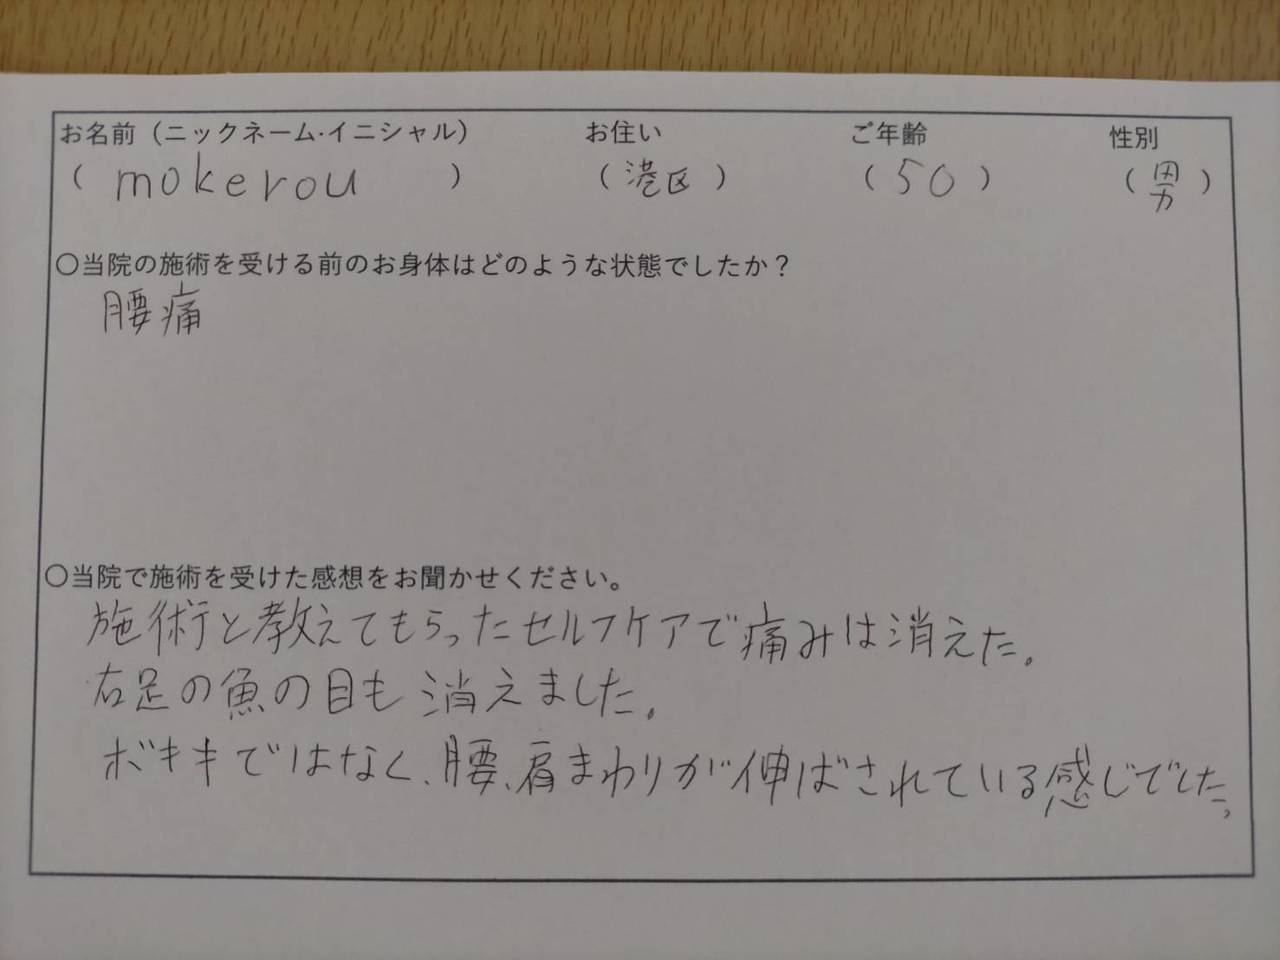 お名前（ニックネーム・イニシャル） お住い ご年齢 性別
（ mokerou ） （ 港区 ） （ 50 ） （ 男 ）
○当院の施術を受ける前のお身体はどのような状態でしたか？
腰痛
○当院で施術を受けた感想をお聞かせください。
施術と教えてもらったセルフケアで痛みは消えた。
右足の魚の目も消えました。
ボキキではなく、腰、肩まわりが伸ばされている感じでした。